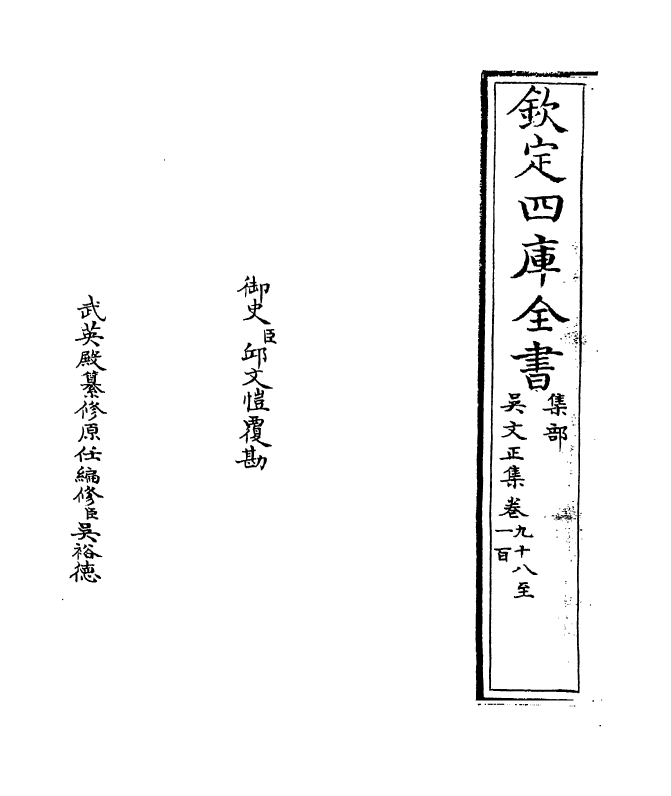 欽定四庫全書
集部
吳文正集卷九十八至一百
御史臣邱文愷覆勘
武英殿纂修原任編修臣吳裕德